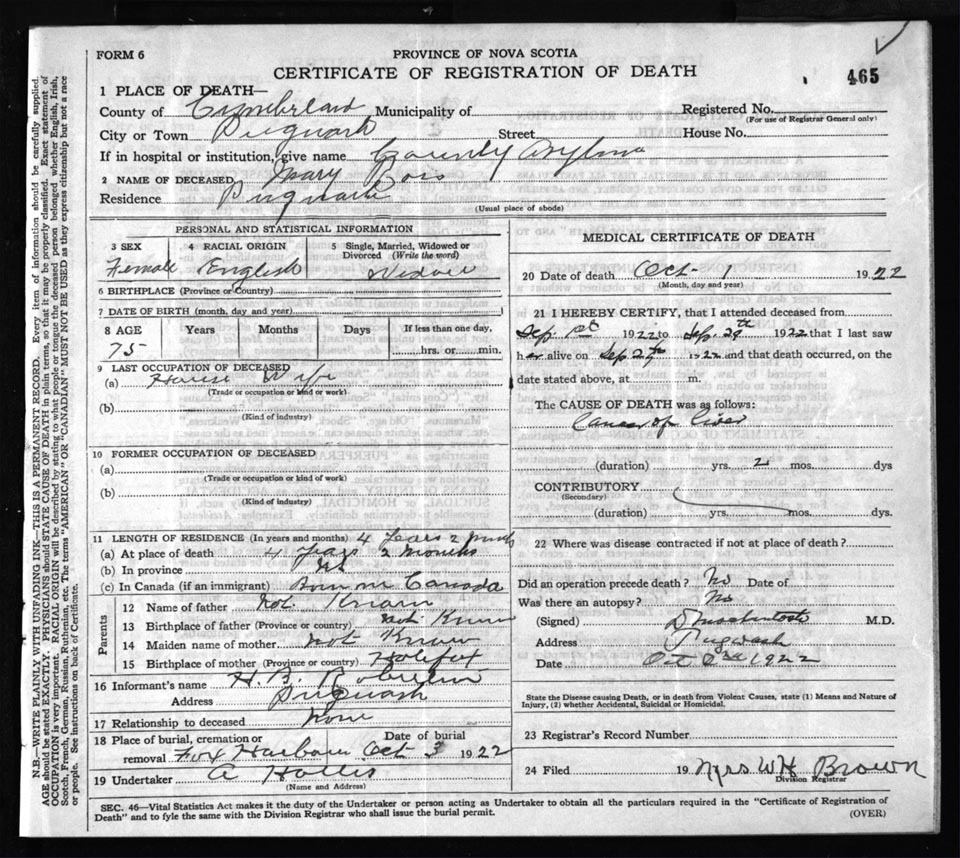 FORM 6
PROVINCE OF NOVA SCOTIA
CERTIFICATE OF REGISTRATION OF DEATH
465
1 PLACE OF DEATH—
County of Cumberland Municipality of
Registered No.
(For use of Registrar General only)
City or Town Pugwash Street House No.
If in hospital or institution, give name County Asylum
2 NAME OF DECEASED Mary
Residence Pugwash
(Usual place of abode)
PERSONAL AND STATISTICAL INFORMATION
3 SEX 4 RACIAL ORIGIN 5 Single, Married, Widowed or Divorced (Write the word)
Female English Widow
6 BIRTHPLACE (Province or Country)
7 DATE OF BIRTH (month, day and year)
8 AGE Years Months Days If less than one day,
75 hrs. or min.
9 LAST OCCUPATION OF DECEASED
(a) House Wife
(Trade or occupation or kind or work)
(b)
(Kind of industry)
10 FORMER OCCUPATION OF DECEASED
(a)
(Trade or occupation or kind of work)
(b)
(Kind of industry)
11 LENGTH OF RESIDENCE (In years and months) 4 Years 2 Months
(a) At place of death 4 Years 2 Months
(b) In province
(c) In Canada (if an immigrant) Born in Canada
Parents
12 Name of father not Known
13 Birthplace of father (Province or country) not Known
14 Maiden name of mother not Know
15 Birthplace of mother (Province or country) Halifax
16 Informant's name H. B.
Address Pugwash
17 Relationship to deceased None
18 Place of burial, cremation or removal Date of burial
Fox Harbour Oct 3 1922
19 Undertaker A Hollis
(Name and Address)
MEDICAL CERTIFICATE OF DEATH
20 Date of death Oct 1 1922
(Month, day and year)
21 I HEREBY CERTIFY, that I attended deceased from
Sep. 1st 1922 to Sep. 29th 1922 that I last saw
her alive on Sep 29th 1922 and that death occurred, on the
date stated above, at m.
The CAUSE OF DEATH was as follows:
Cancer of Liver
(duration) yrs. 2 mos. dys
CONTRIBUTORY
(Secondary)
(duration) yrs. mos. dys.
22 Where was disease contracted if not at place of death?
Did an operation precede death? No Date of
Was there an autopsy? No
(Signed) D Mackintosh M.D.
Address Pugwash
Date Oct 2nd 1922
State the Disease causing Death, or in death from Violent Causes, state (1) Means and Nature of
Injury, (2) whether Accidental, Suicidal or Homicidal.
23 Registrar's Record Number
24 Filed 19 Mrs W H Brown
Division Registrar
SEC. 46—Vital Statistics Act makes it the duty of the Undertaker or person acting as Undertaker to obtain all the particulars required in the "Certificate of Registration of
Death" and to fyle the same with the Division Registrar who shall issue the burial permit.
(OVER)
N.B.—WRITE PLAINLY WITH UNFADING INK—THIS IS A PERMANENT RECORD. Every item of information should be carefully supplied.
AGE should be stated EXACTLY. PHYSICIANS should STATE CAUSE OF DEATH in plain terms, so that it may be properly classified. Exact statement of
OCCUPATION is very important. RACIAL ORIGIN will be described by stating to what people or tongue the deceased person belonged whether English, Irish,
Scotch, French, German, Russian, Ruthenian, etc. The terms "AMERICAN" OR "CANADIAN" MUST NOT BE USED as they express citizenship but not a race
or people. See instructions on back of Certificate.